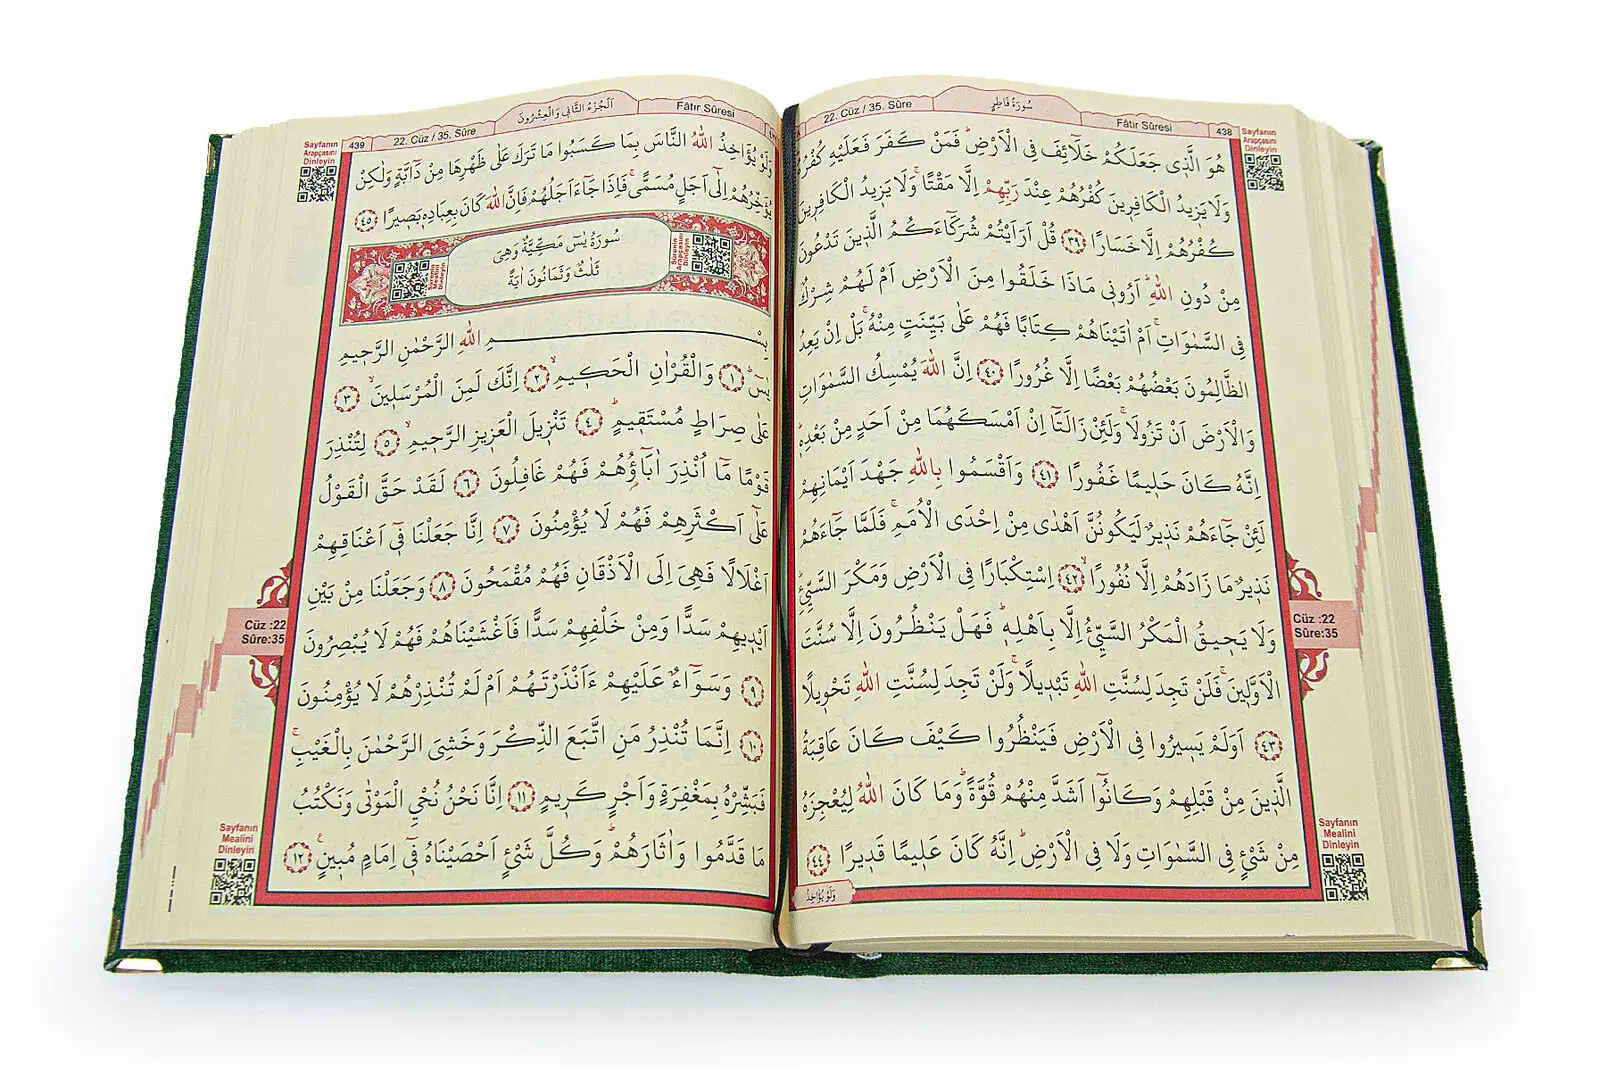 سُورَةُ فَاطِرٍ
22. Cüz / 35. Sûre
Fâtır Sûresi
438
Sayfanın
Arapçasını
Dinleyin
هُوَ الَّذٖى جَعَلَكُمْ خَلَٓائِفَ فِى الْاَرْضِؕ فَمَنْ كَفَرَ فَعَلَيْهِ كُفْرُهُ
وَلَا يَزٖيدُ الْكَافِرٖينَ كُفْرُهُمْ عِنْدَ رَبِّهِمْ اِلَّا مَقْتًاۚ وَلَا يَزٖيدُ الْكَافِرٖينَ
كُفْرُهُمْ اِلَّا خَسَارًا ﴿٣٩﴾ قُلْ اَرَاَيْتُمْ شُرَكَٓاءَكُمُ الَّذٖينَ تَدْعُونَ
مِنْ دُونِ اللّٰهِؕ اَرُونٖى مَاذَا خَلَقُوا مِنَ الْاَرْضِ اَمْ لَهُمْ شِرْكٌ
فِى السَّمٰوَاتِۚ اَمْ اٰتَيْنَاهُمْ كِتَابًا فَهُمْ عَلٰى بَيِّنَتٍ مِنْهُۚ بَلْ اِنْ يَعِدُ
الظَّالِمُونَ بَعْضُهُمْ بَعْضًا اِلَّا غُرُورًا ﴿٤٠﴾ اِنَّ اللّٰهَ يُمْسِكُ السَّمٰوَاتِ
وَالْاَرْضَ اَنْ تَزُولَاۚ وَلَئِنْ زَالَتَٓا اِنْ اَمْسَكَهُمَا مِنْ اَحَدٍ مِنْ بَعْدِهٖؕ
اِنَّهُ كَانَ حَلٖيمًا غَفُورًا ﴿٤١﴾ وَاَقْسَمُوا بِاللّٰهِ جَهْدَ اَيْمَانِهِمْ
لَئِنْ جَٓاءَهُمْ نَذٖيرٌ لَيَكُونُنَّ اَهْدٰى مِنْ اِحْدَى الْاُمَمِۚ فَلَمَّا جَٓاءَهُمْ
نَذٖيرٌ مَا زَادَهُمْ اِلَّا نُفُورًاۙ ﴿٤٢﴾ اِسْتِكْبَارًا فِى الْاَرْضِ وَمَكْرَ السَّيِّئِؕ
وَلَا يَحٖيقُ الْمَكْرُ السَّيِّئُ اِلَّا بِاَهْلِهٖؕ فَهَلْ يَنْظُرُونَ اِلَّا سُنَّتَ
الْاَوَّلٖينَۚ فَلَنْ تَجِدَ لِسُنَّتِ اللّٰهِ تَبْدٖيلًاۚ وَلَنْ تَجِدَ لِسُنَّتِ اللّٰهِ تَحْوٖيلًا
﴿٤٣﴾ اَوَلَمْ يَسٖيرُوا فِى الْاَرْضِ فَيَنْظُرُوا كَيْفَ كَانَ عَاقِبَةُ
الَّذٖينَ مِنْ قَبْلِهِمْ وَكَانُٓوا اَشَدَّ مِنْهُمْ قُوَّةًؕ وَمَا كَانَ اللّٰهُ لِيُعْجِزَهُ
مِنْ شَىْءٍ فِى السَّمٰوَاتِ وَلَا فِى الْاَرْضِؕ اِنَّهُ كَانَ عَلٖيمًا قَدٖيرًا ﴿٤٤﴾
وَلَوْ يُؤَاخِذُ
Cüz :22
Sûre:35
Sayfanın
Mealini
Dinleyin
اَلْجُزْءُ الثَّانٖى وَالْعِشْرُونَ
Fâtır Sûresi
22. Cüz / 35. Sûre
439
Sayfanın
Arapçasını
Dinleyin
وَلَوْ يُؤَاخِذُ اللّٰهُ النَّاسَ بِمَا كَسَبُوا مَا تَرَكَ عَلٰى ظَهْرِهَا مِنْ دَٓابَّةٍ وَلٰكِنْ
يُؤَخِّرُهُمْ اِلٰٓى اَجَلٍ مُسَمًّىۚ فَاِذَا جَٓاءَ اَجَلُهُمْ فَاِنَّ اللّٰهَ كَانَ بِعِبَادِهٖ بَصٖيرًا ﴿٤٥﴾
سُورَةُ يٰسٓ مَكِّيَّةٌ وَهِىَ
ثَلٰثٌ وَثَمَانُونَ اٰيَةً
Sûrenin
Arapçasını
Dinleyin
Sûrenin
Mealini
Dinleyin
بِسْمِ اللّٰهِ الرَّحْمٰنِ الرَّحٖيمِ
يٰسٓۚ ﴿١﴾ وَالْقُرْاٰنِ الْحَكٖيمِۙ ﴿٢﴾ اِنَّكَ لَمِنَ الْمُرْسَلٖينَۙ ﴿٣﴾
عَلٰى صِرَاطٍ مُسْتَقٖيمٍؕ ﴿٤﴾ تَنْزٖيلَ الْعَزٖيزِ الرَّحٖيمِۙ ﴿٥﴾ لِتُنْذِرَ
قَوْمًا مَٓا اُنْذِرَ اٰبَٓاؤُهُمْ فَهُمْ غَافِلُونَ ﴿٦﴾ لَقَدْ حَقَّ الْقَوْلُ
عَلٰٓى اَكْثَرِهِمْ فَهُمْ لَا يُؤْمِنُونَ ﴿٧﴾ اِنَّا جَعَلْنَا فٖٓى اَعْنَاقِهِمْ
اَغْلَالًا فَهِىَ اِلَى الْاَذْقَانِ فَهُمْ مُقْمَحُونَ ﴿٨﴾ وَجَعَلْنَا مِنْ بَيْنِ
اَيْدٖيهِمْ سَدًّا وَمِنْ خَلْفِهِمْ سَدًّا فَاَغْشَيْنَاهُمْ فَهُمْ لَا يُبْصِرُونَ
﴿٩﴾ وَسَوَٓاءٌ عَلَيْهِمْ ءَاَنْذَرْتَهُمْ اَمْ لَمْ تُنْذِرْهُمْ لَا يُؤْمِنُونَ
﴿١٠﴾ اِنَّمَا تُنْذِرُ مَنِ اتَّبَعَ الذِّكْرَ وَخَشِىَ الرَّحْمٰنَ بِالْغَيْبِۚ
فَبَشِّرْهُ بِمَغْفِرَةٍ وَاَجْرٍ كَرٖيمٍ ﴿١١﴾ اِنَّا نَحْنُ نُحْيِ الْمَوْتٰى وَنَكْتُبُ
مَا قَدَّمُوا وَاٰثَارَهُمْؕ وَكُلَّ شَىْءٍ اَحْصَيْنَاهُ فٖٓى اِمَامٍ مُبٖينٍ ﴿١٢﴾
Cüz :22
Sûre:35
Sayfanın
Mealini
Dinleyin